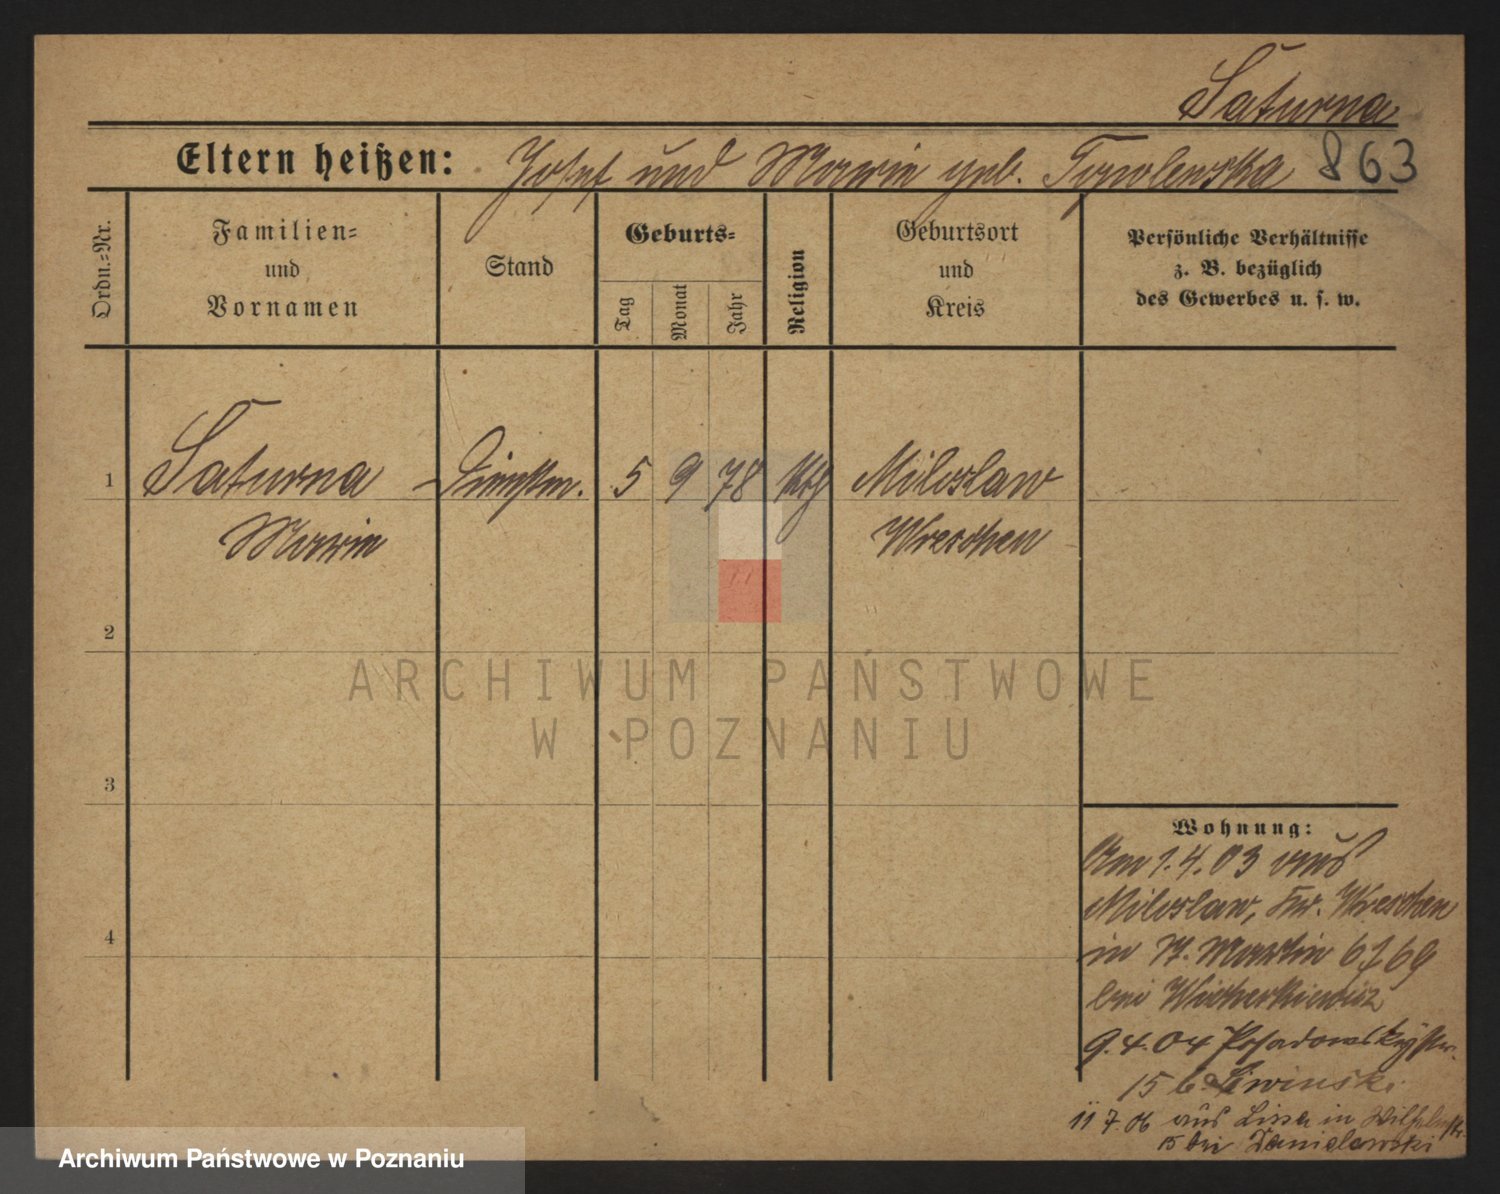 Saturna
Eltern heißen: Josef und Marie geb. Topolenska 863
Ordn.-Nr.
Familien-
und
Vornamen
Stand
Geburts-
Tag
Monat
Jahr
Religion
Geburtsort
und
Kreis
Persönliche Verhältnisse
z. B. bezüglich
des Gewerbes u. s. w.
1 Saturna Dienstm. 5 9 78 kth Miloslaw
Marie Wreschen
2
3
4
ARCHIWUM PAŃSTWOWE
W POZNANIU
Wohnung:
Am 1.4.03 aus
Miloslaw, Kr. Wreschen
in St. Martin 67/69
bei Wicherkiewicz
9.4.04 Posadowskystr.
15 b. Siwinski
11 7. 06 aus Lissa in Wilhelmstr
15 bei Danielewski
Archiwum Państwowe w Poznaniu